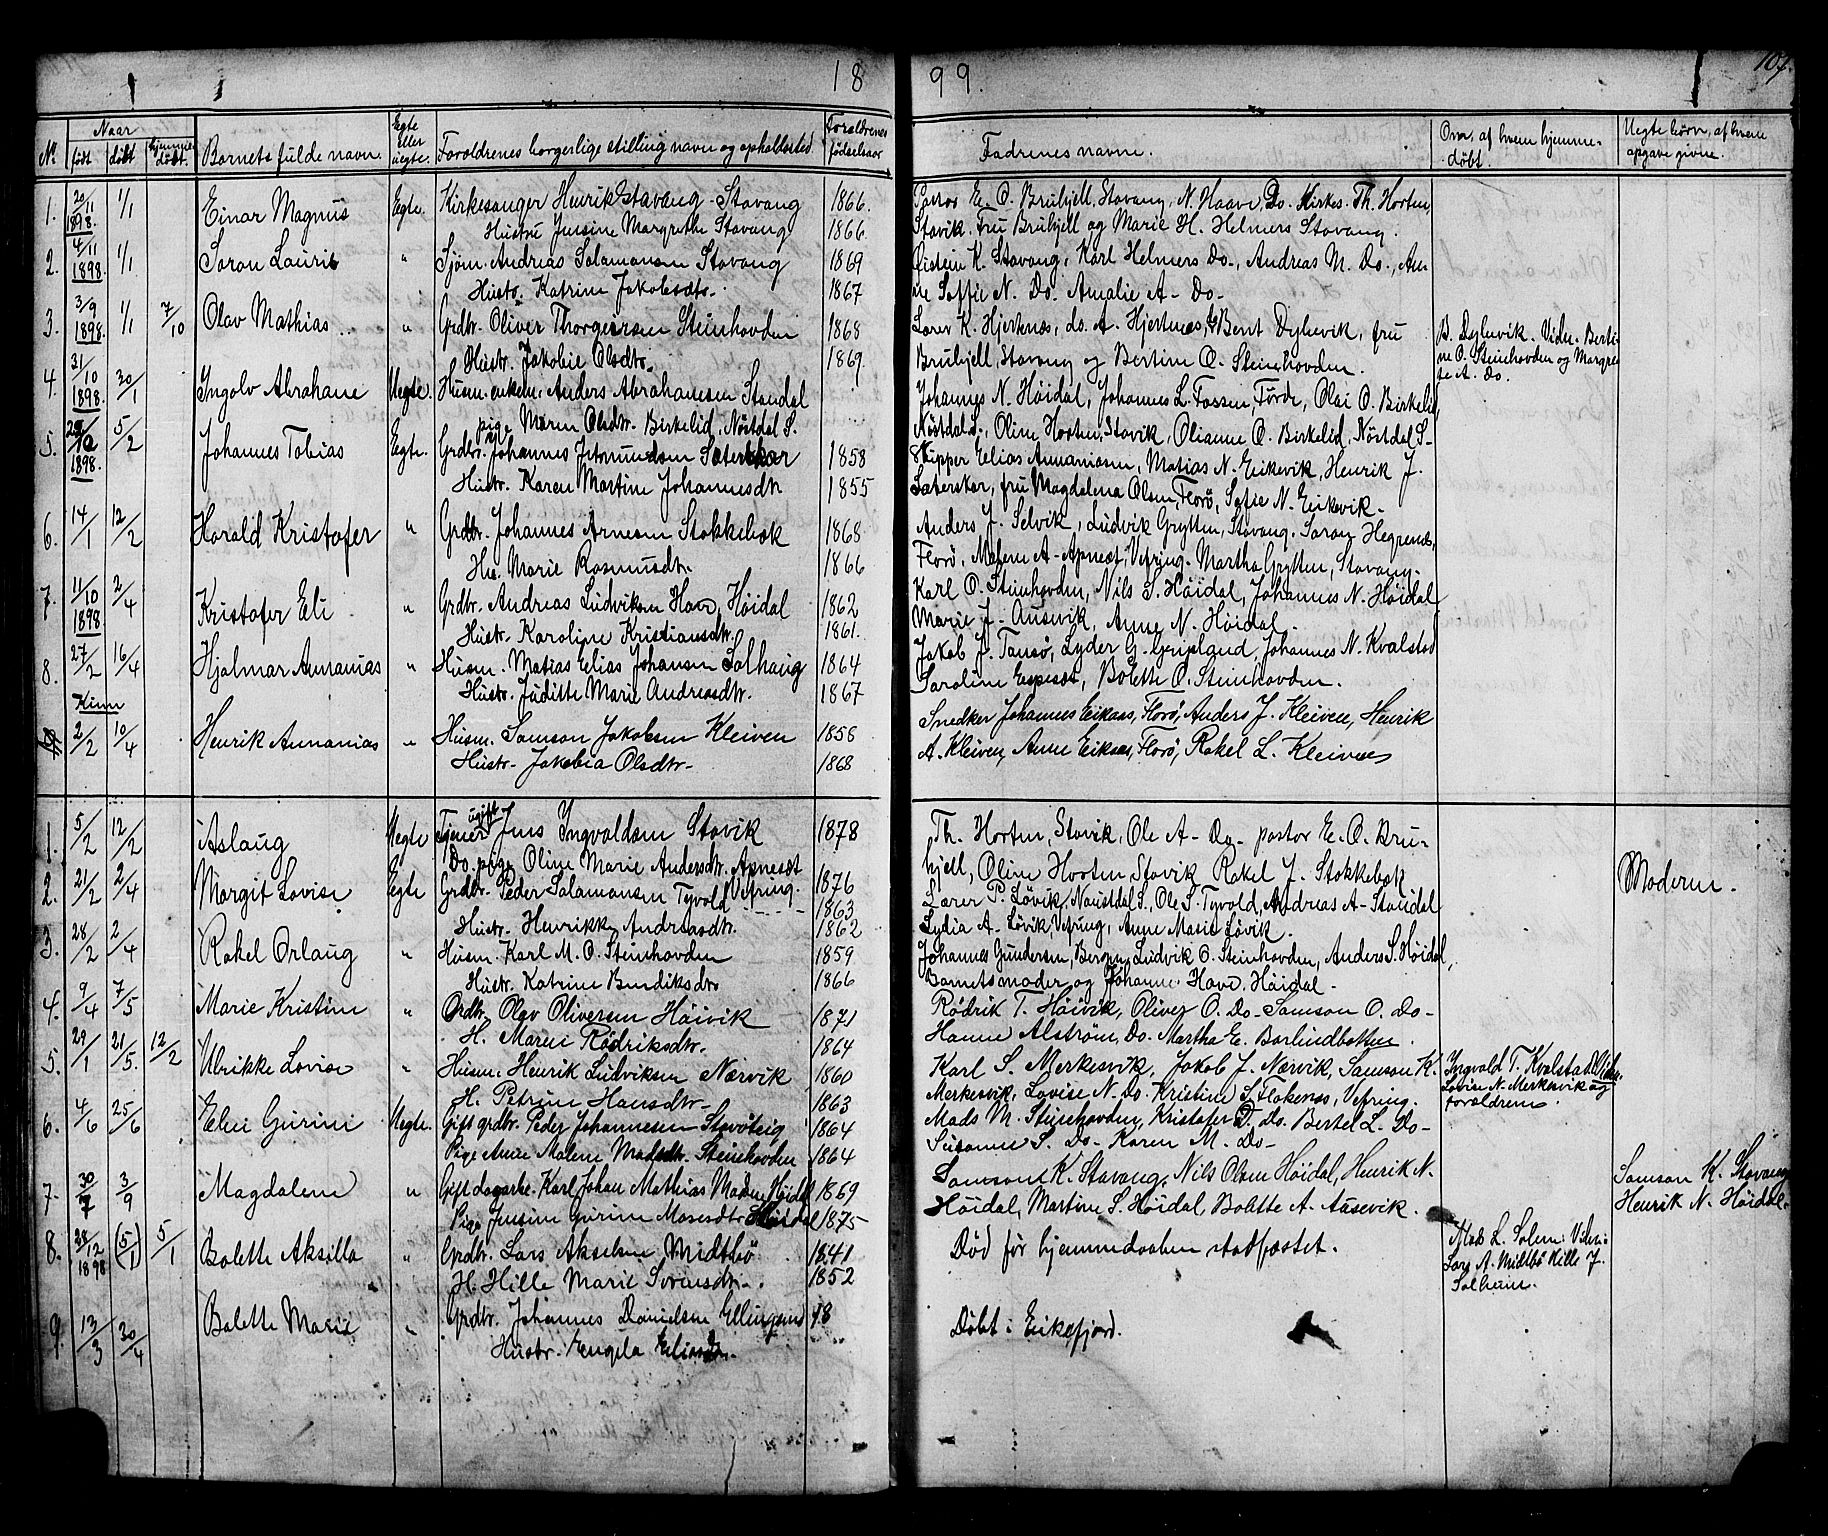 18 99.
107.
No. Naar født døbt hjemmedøbt. Barnets fulde navn. Egte eller uegte. Forældrenes borgerlige stilling navn og opholdssted Forældrenes fødselsaar Fadrenes navne. Om, af hvem hjemmedøbt. Uegte børn, af hvem opgave givne.
1. 20/11 1898. 1/1 Einar Magnus Egte. Kirkesanger Henrik Stavang - Stavang 1866. Pastor E. O. Bruhjell, Stavang, N. Haave, Do. Kirkes. Th. Horten,
Hustru Jensine Margrethe Stavang 1866. Stavik. Fru Bruhjell og Marie H. Helmers Stavang.
2. 4/11 1898. 1/1 Søren Laurits " Sjøm. Andreas Salamonsen Stavang 1869 Øistein K. Stavang, Karl Helmers Do., Andreas M. Do., An-
Hustr. Katrine Jakobsdtr. 1867 ne Soffie N. Do. Amalie A- Do-
3. 3/9 1898. 1/1 7/10 Olav Mathias " Grdbr. Oliver Thorgersen Steinhovden 1868 Lærer K. Hjertnes, do. A. Hjertnes, Bent Dybevik, fru B. Dybevik. Viden. Berti-
Hustr. Jakobie Olsdtr. 1869. Bruhjell, Stavang og Bertine O. Steinhovden. ne O. Steinhovden og Margre- te A. Do.
4. 31/10 1898. 30/1 Ingolv Abrahane Uegte. Husm. enkem. Anders Abrahamsen Standal Johannes N. Høidal, Johannes L. Fossen, Førde, Olai O. Birkelid,
pige Maren Olsdtr. Birkelid, Nøstdal S. Nøstdal S., Oline Horten, Stavik, Olianne O. Birkelid, Nøstdal S-
5. 1898. 5/2 Johannes Tobias Egte. Grdbr. Johannes Jetmundsen Sæterskar 1858 Skipper Elias Annaniasen, Matias N. Eikevik, Henrik J.
Hustr. Karen Martine Johannesdtr 1855 Sæterskar, fru Magdalena Olsen, Florø, Sofie N. Eikevik-
6. 14/1 12/2 Harald Kristofer " Grdbr. Johannes Arnesen Stokkebøk 1868 Anders J. Selvik, Ludvik Grytten, Stavang. Søren Hegrenes,
Hu. Marie Rasmusdtr. 1866 Florø, Malene A- Apneset, Vefring. Martha Grytten, Stavang.
7. 11/10 1898 2/4 Kristofer Eli " Grdbr. Andreas Ludviksen Have, Høidal 1862 Karl O. Steinhovden, Nils S. Høidal, Johannes N. Høidal
Hustr. Karoline Kristiansdtr. 1861. Marie J- Ausevik, Anne N. Høidal.
8. 27/2 16/4 Hjalmar Annanias " Husm. Matias Elias Johansen Solhaug 1864 Jakob J. Tansø, Lyder G. Grepland, Johannes N. Kvalstad
Hustr. Juditte Marie Andreasdtr. 1867 Saroline Espeset, Bolette O. Steinhovden.
Kinn
2/2 10/4 Henrik Annanias " Husm. Samson Jakobsen Kleiven 1858 Snedker Johannes Eikaas, Florø, Anders J. Kleiven, Henrik
Hustr. Jakobia Olsdtr- 1868 A. Kleiven, Anne Eikaas, Florø, Rakel L. Kleiven
1. 5/2 12/2 Aslaug Uegte Tjener ugift Jens Ingvaldsen Stavik 1878 Th. Horten, Stavik, Ole A- Do- pastor E. O. Bru-
Do. pige Oline Marie Andersdtr. Apneset Vefring. 1876 hjell, Oline Horten Stavik Rakel J. Stokkebøk Moderen.
2. 21/2 2/4 Margit Lovise Egte Grdbr. Peder Salamonsen Tyvold 1863 Lærer P. Løvik, Naustdal S., Ole S. Tyvold, Andreas A- Standal
Hustr. Henrikke Andreasdtr. 1862 Lydia A- Løvik, Vefring, Anne Marie Løvik.
3. 28/2 2/4 Rakel Orlaug " Husm. Karl M. O. Steinhovden 1859 Johannes Gundersen, Bergen, Ludvik O. Steinhovden, Anders S. Høidal,
Hustr. Katrine Bendiksdtr 1866 Barnets moder og Johanne Have, Høidal.
4. 9/4 7/5 Marie Kristine " Grdbr. Olav Oliversen Høivik 1871 Rødrik T. Høivik, Oliver O. Do- Samson O. Do-
H. Maren Rødriksdtr. 1864 Hanne Alstrøm, Do. Martha E. Barlindbotten.
5. 29/1 21/5. 12/2 Ulrikke Lovise " Husm. Henrik Ludviksen Nærvik 1860 Karl S. Merkesvik, Jakob J. Nærvik, Samson K. Ingvald T. Kvalstad Viden.
H. Petrine Hansdtr. 1863 Merkesvik, Lovise N. Do- Kristine S. Flokenes, Vefring. Lovise N. Merkesvik og forældrene.
6. 4/6 25/6 Elen Gurine Uegte. Gift grdbr. Peder Johannesen Stavøteig 1864 Mads M. Steinhovden, Kristofer D. Do. Bertel L. Do-
Pige Anne Malene Madsdtr. Steinhovden 1864 Susanne S. Do- Karen M. Do-
7. 30/7 3/9 Magdalene " Gift dagarb. Karl Johan Mathias Madsen Høidal 1869 Samson K. Stavang, Nils Olsen Høidal, Henrik N. Samson K. Stavang
Pige Jensine Gurine Mosesdtr Høidal 1875 Høidal, Martine S. Høidal, Bolette A. Ausevik. Henrik N. Høidal.
8. 28/12 1898 (5/1) 5/1 Bolette Aksilla " Grdbr. Lars Akselsen Midtbø 1841 Død før hjemmedaaben stadfæstet. Mads L. Solem: Viden:
H. Hille Marie Svensdtr. 1852 Lars A. Midtbø Hille J. Solheim.
9. 13/3 30/4 Bolette Marie " Grdbr. Johannes Danielsen Ellingsund 18 Døbt i Eikefjord.
Hustr. Engela Eliasdtr.